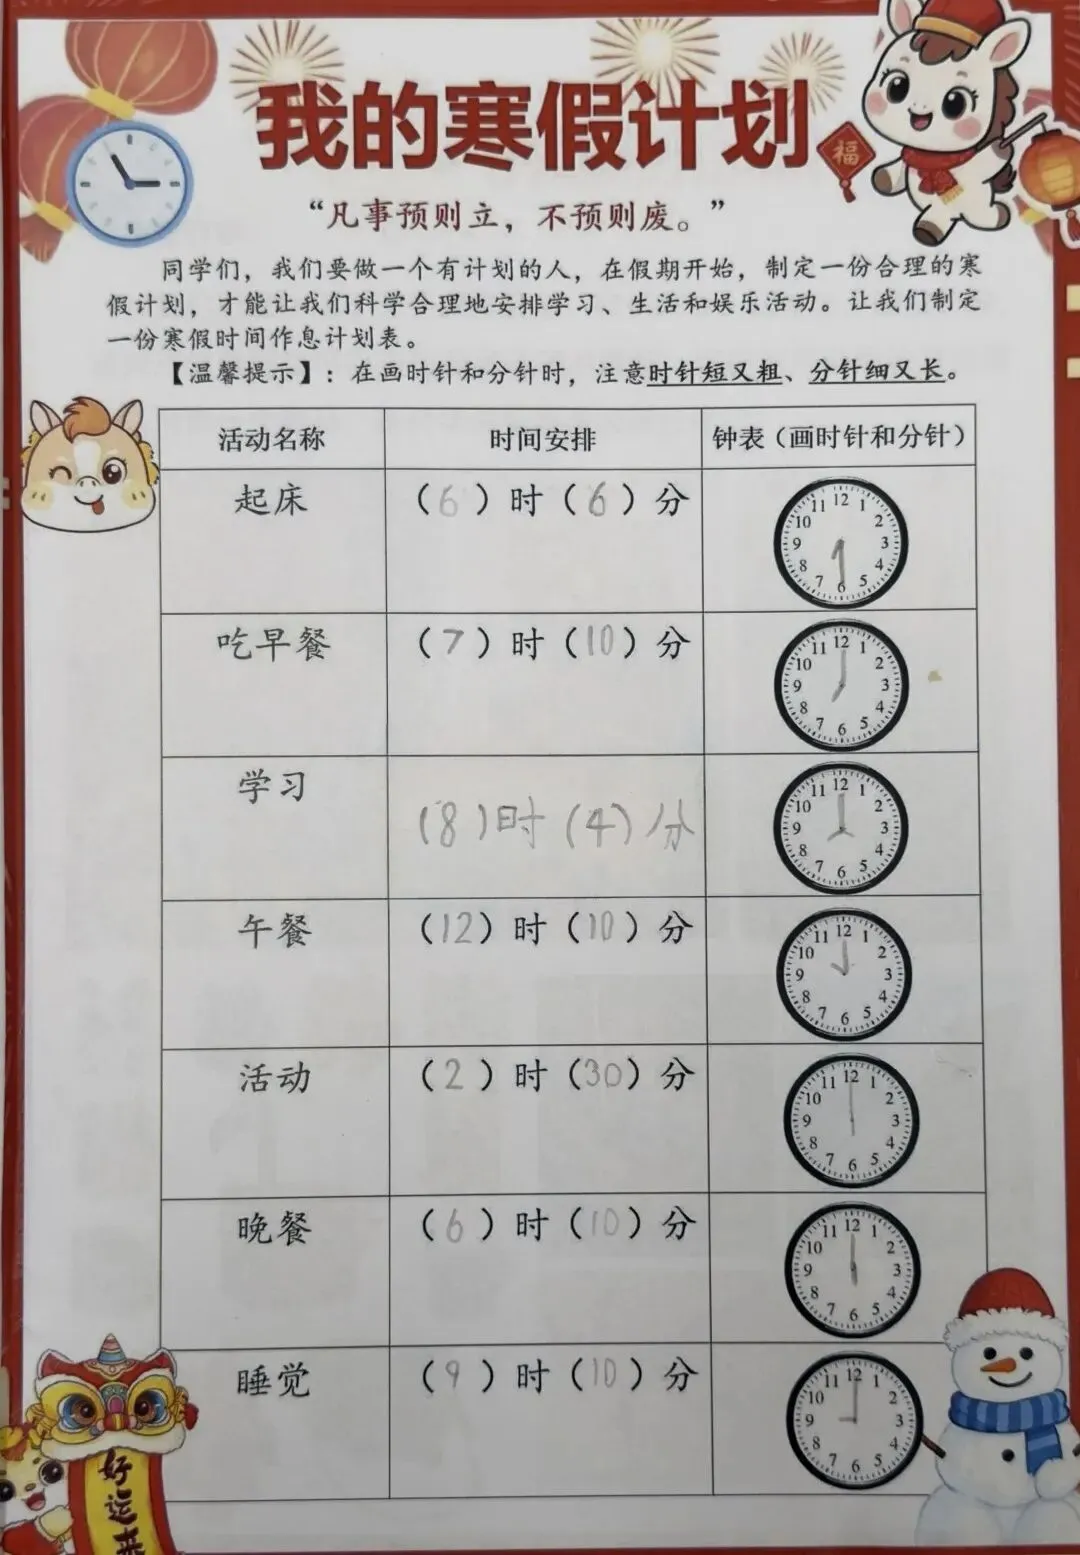 我的寒假计划
福
“凡事预则立，不预则废。”
同学们，我们要做一个有计划的人，在假期开始，制定一份合理的寒
假计划，才能让我们科学合理地安排学习、生活和娱乐活动。让我们制定
一份寒假时间作息计划表。
【温馨提示】：在画时针和分针时，注意时针短又粗、分针细又长。
活动名称 时间安排 钟表（画时针和分针）
起床 （6）时（6）分
12 1 2 3 4 5 6 7 8 9 10 11
吃早餐 （7）时（10）分
12 1 2 3 4 5 6 7 8 9 10 11
学习 （8）时（4）分
12 1 2 3 4 5 6 7 8 9 10 11
午餐 （12）时（10）分
12 1 2 3 4 5 6 7 8 9 10 11
活动 （2）时（30）分
12 1 2 3 4 5 6 7 8 9 10 11
晚餐 （6）时（10）分
12 1 2 3 4 5 6 7 8 9 10 11
睡觉 （9）时（10）分
12 1 2 3 4 5 6 7 8 9 10 11
好运来